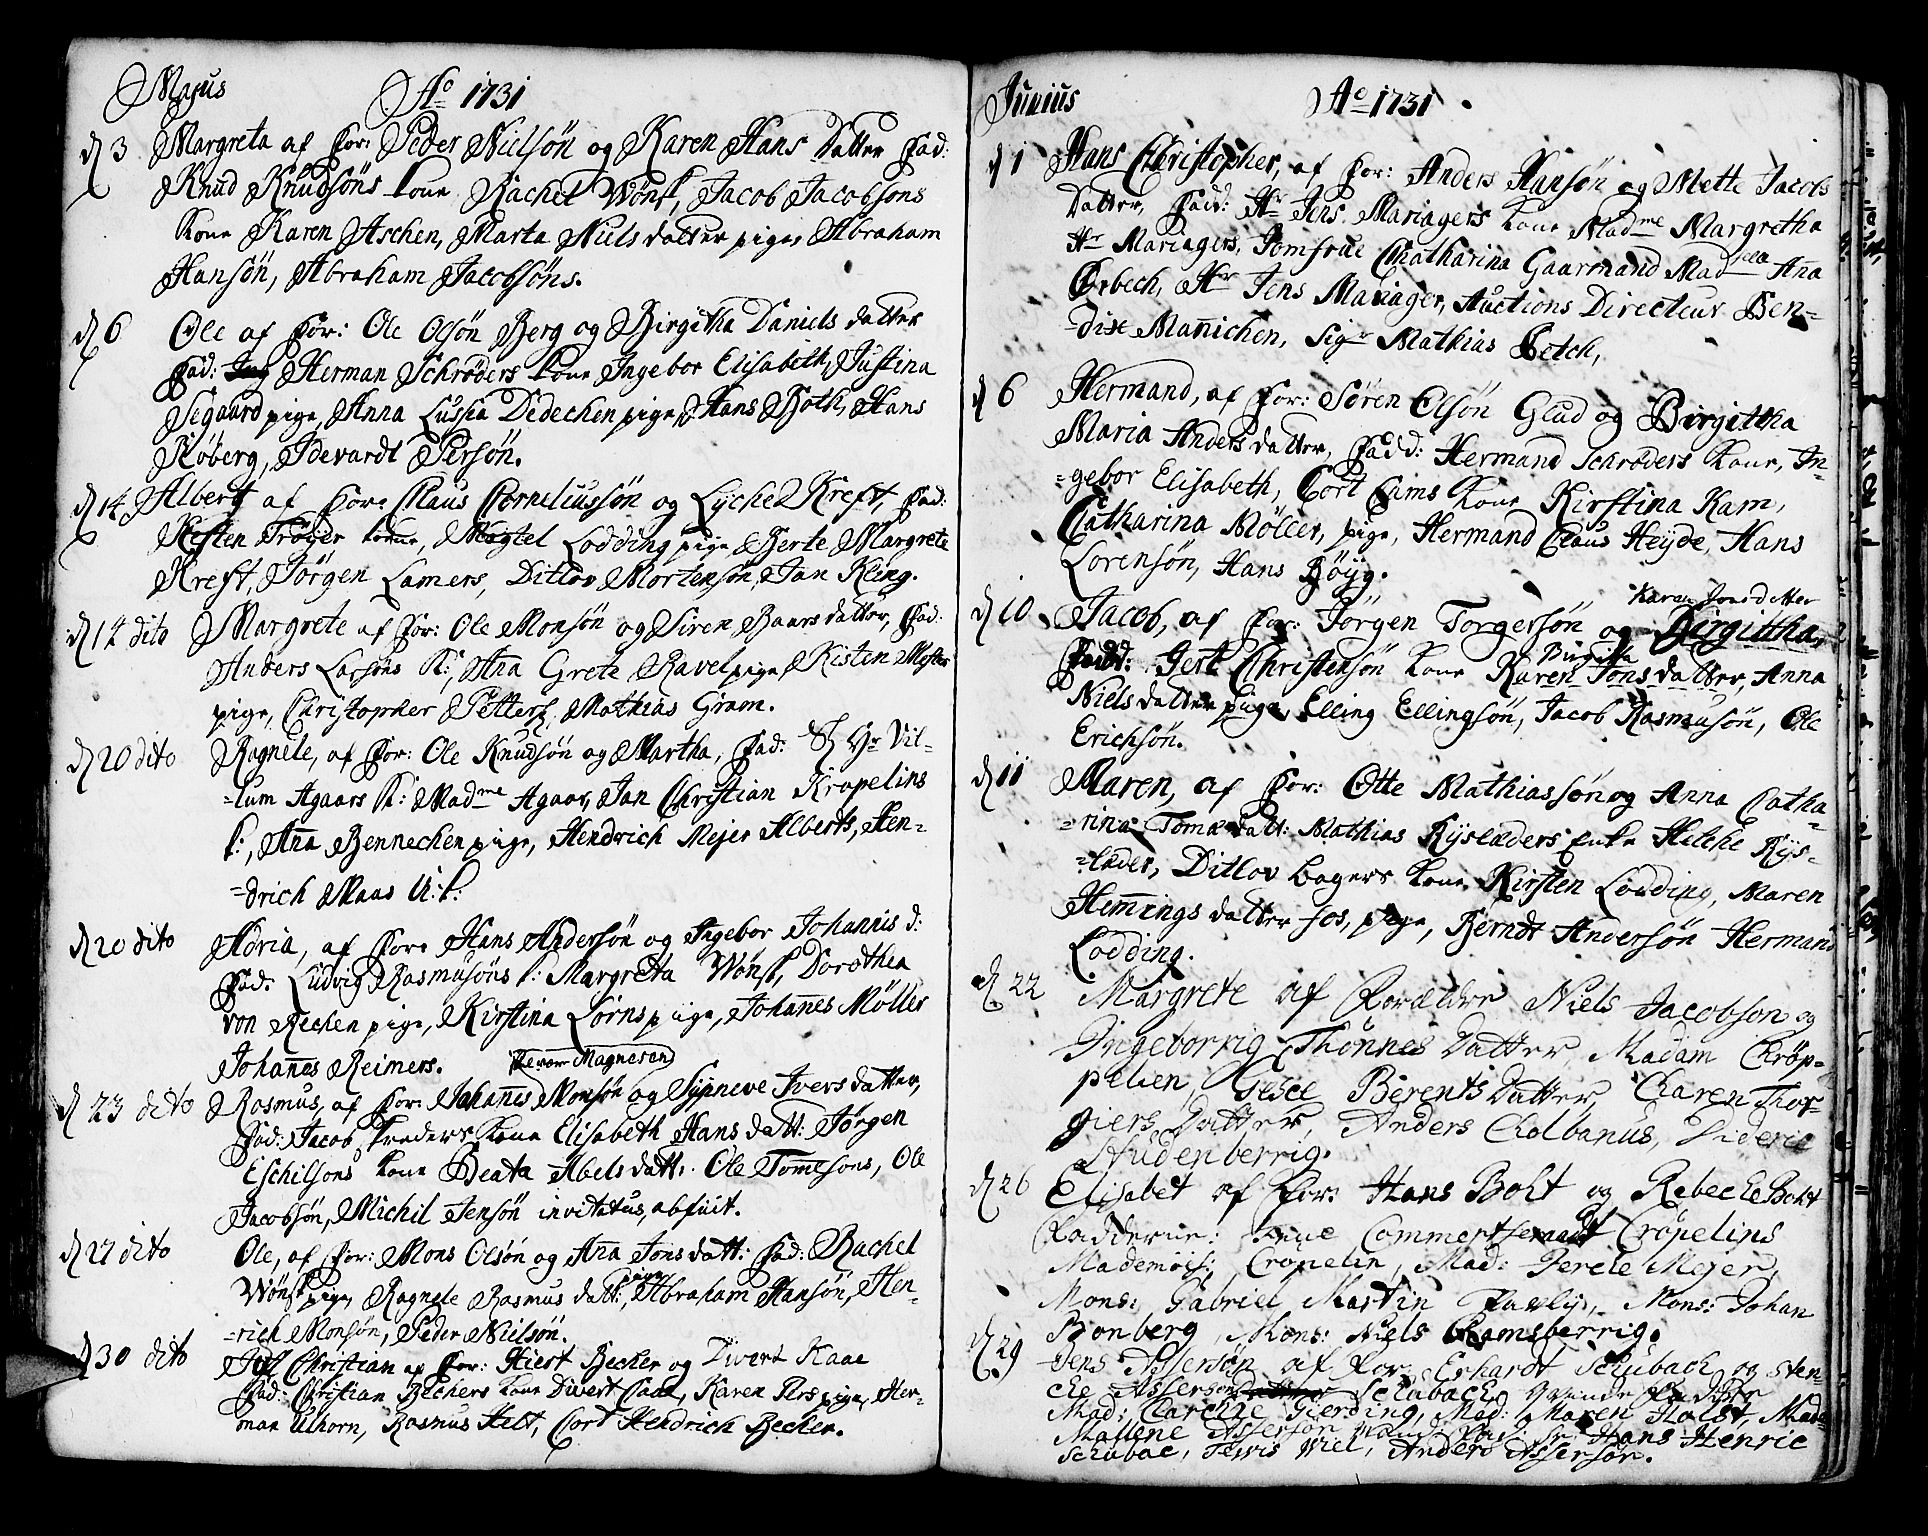 Majus Ao 1731
d 3 Margreta af For: Peder Nielsön og Karen Hans Datter Fad:
Knud Knudsöns kone Rachel Wönst, Jacob Jacobsons
kone Karen Aschen, Marta Niels datter pige, Abraham
Hansön, Abraham Jacobsöns.
d 6 Ole af For: Ole Olsön Berg og Birgitha Daniels datter
Fad: Herman Schröders kone Ingebor Elisabeth, Justina
Segaard pige, Anna Lussia Dedechen pige, Hans Both, Hans
Röberg, Idevardt Persön.
d 14 Albert af For: Claus Corneliussön og Lyche Kreft, Fad:
Kesten Tröyer kone, Magtel Lodding pige Berte Margrete
Kreft, Jörgen Lamers, Ditlov Mortensön, Jan Kling.
d 14 dito Margrete af For: Ole Monsön og Siren Baars datter, Fad:
Anders Larsöns K:, Aña Grete Ravel pige, Kisten Mester
pige, Christopher Petters, Mathias Gram.
d 20 dito Ragnele, af For: Ole Knudsön og Martha, Fad: Hr Vil-
=lum Agaars K: Madme Agaar, Jan Christian Kröpelins
k:, Aña Bennechen piige, Hendrich Mejer Alberts, Hen-
=drich Maas U: k:
d 20 dito Adria, af For: Hans Andersön og Ingebor Johannis d:
Fad: Ludvig Rasmusöns k: Margreta Wönst, Dorothea
von Rechen pige, Kirstina Lörns piige, Johañes Möller
Johañes Reimers.
Peder Magnesen
d 23 dito Rasmus, af For: Johañes Monsön og Synneve Ivers datter,
Fad: Jacob Freders kone Elisabeth Hans datt: Jörgen
Eschilsons kone Beata Abels datt: Ole Tomesons, Ole
Jacobsön, Michil Jensön invitatus, abfuit.
d 27 dito Ole, af For: Mons Olsön og Aña Jons datt: Fad: Rachel
Wönst pige, Ragnele Rasmus datt: pige, Abraham Hansön, Hen-
=rich Monsön, Peder Nielsön.
d 30 dito Christian af For: Hiert Becher og Divert Kaae
Fad: Christian Bechers kone Divert Caae, Karen Pers pige, Her-
man Ulhorn, Rasmus Helt, Cort Hendrich Becher.
Junius Ao 1731
d 1 Hans Christopher, af For: Anders Hansön og Mette Jacobs
Datter, Fad: Hr Jens Mariagers kone Madme Margretha
Hr Mariagers, Jomfrue Chatharina Gaarmand Madsell Aña
Orbech, Hr Jens Mariager, Auctions Directeur Ben=
=dix Mañichen, Sigr Mathias Petch,
d 6 Hermand, af For: Sören Olsön Glud og Birgittha
Maria Anders datter, Fadd: Hermand Schröders kone, In-
=gebor Elisabeth, Cort Cams kone Kirstina Kam,
Catharina Möller, pige, Hermand Claus Heyde, Hans
Lorensön, Hans Böyg.
Karen Jons datter
d 10 Jacob, af For: Jörgen Torgersön og Birgittha,
Fadd: Gert Christensön kone Birgitta Karen Jons datter, Anna
Niels datter piige, Elling Ellingsön, Jacob Rasmusön, Ole
Erichsön.
d 11 Maren, af For: Otte Mathiassön og Anna Catha-
=rina Tomæ datt: Mathias Ryslæders Enke Helche Rys-
=læder, Ditlov bagers kone Kirsten Lodding, Maren
Hemings datter Fos, pige, Berndt Andersön Hermand
Lodding.
d. 22 Margrete af Forældre Niels Jacobson og
Ingeborrig Thönnes Datter, Madam Chröp-
pelien, Gesce Berents Datter, Charen Thor-
giers Datter, Anders Cholbanus, Diderie
Studenberrig.
d 26 Elisabet af For: Hans Boht og Rebeche Boht
Fadderne: Frue Commertseraadt Cröpelins
Mademois: Cröpelin, Mad: Jerele Mejer,
Mons: Gabriel Martin Pavly, Mons: Johan
Bonberg, Mons: Niels Ramsberrig.
d. 29 Jens Assersön af For: Erhardt Schubach og Sten-
che Asserson Schubach,
Mad: Carchle Gierding, Mad: Maren Holst, Made
Mallene Asserson Hans Henric
Schubac, Tewis Wiel, Anders Assersön.